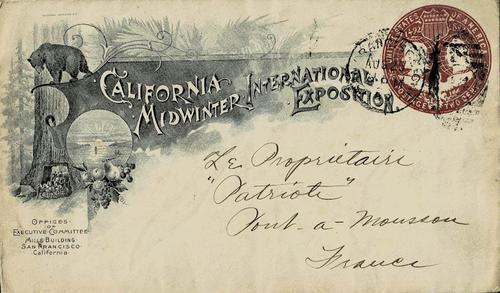 CALIFORNIA
MIDWINTER INTERNATIONAL
EXPOSITION
UNITED STATES OF AMERICA
POSTAGE TWO CENTS
OFFICES
OF
EXECUTIVE COMMITTEE
MILLS BUILDING
SAN FRANCISCO
California
Le Propriétairi
"Patriote"
Pont-a-Mousson
France